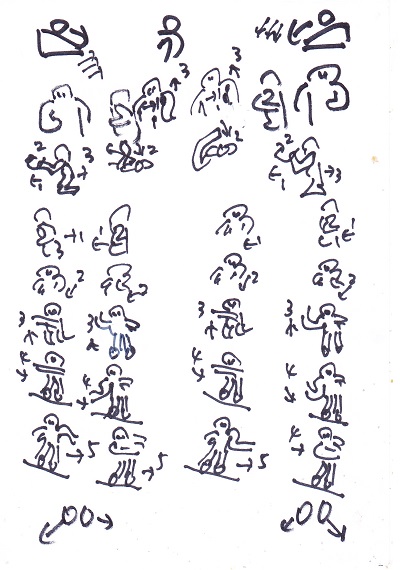 3 3
2 3 2 2 2
1 1 3
3 1 1 1 1
2 2 2 3
3 3 3 3
4 4 4 4
5 5 5 4